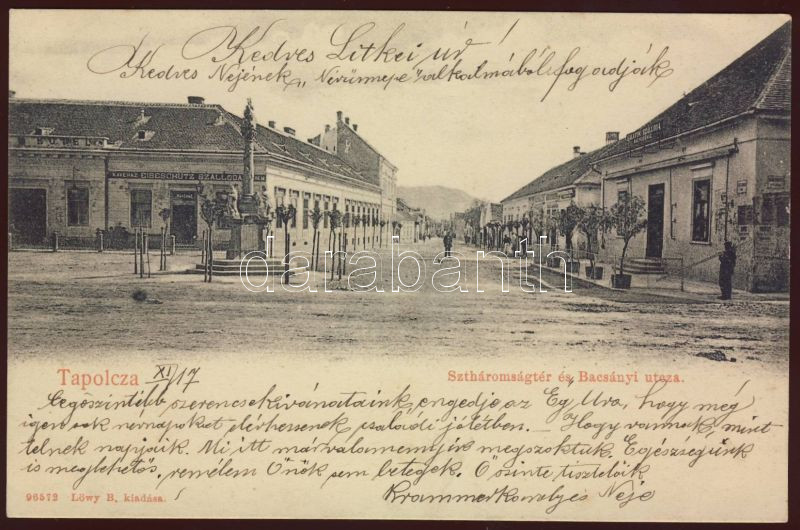 Kedves Litkei úr!
Kedves Nejének „Névünnepe" alkalmából fogadják
KÁVÉHÁZ EIBENSCHÜTZ SZÁLLODA
darabanth
Tapolcza XI/17
Szthháromságtér és Bacsányi utcza.
Legőszintébb szerencsekívánataink, engedje az Ég Ura, hogy még
igen sok névnapokat elérhessenek családi jólétben. — Hogy vannak, mint
telnek napjaik. Mi itt már valamennyire megszoktuk. Egészségünk
is meglehetős, remélem Önök sem betegek. Őszinte tisztelőik
Krammer Károly és Neje
96572 Löwy B. kiadása.